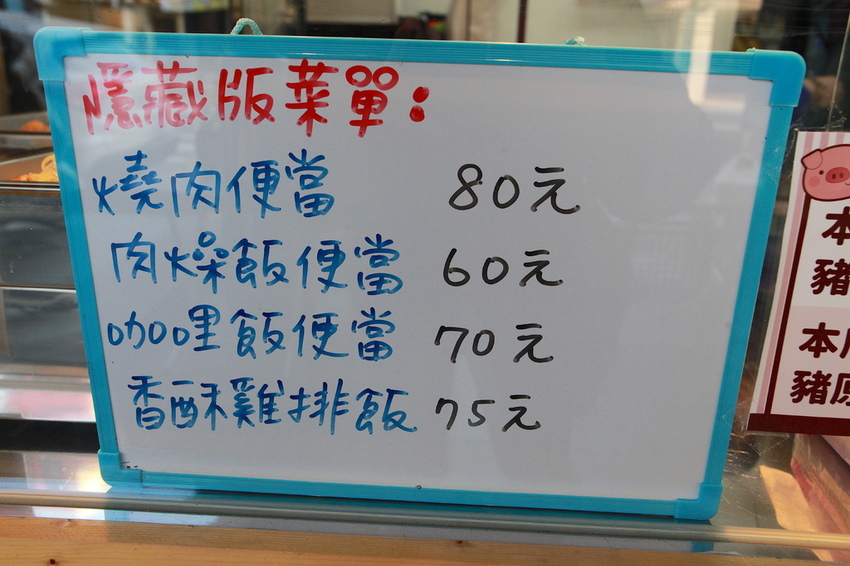 隱藏版菜單:
燒肉便當 80元
肉燥飯便當 60元
咖哩飯便當 70元
香酥雞排飯 75元
本
豬
本
豬原